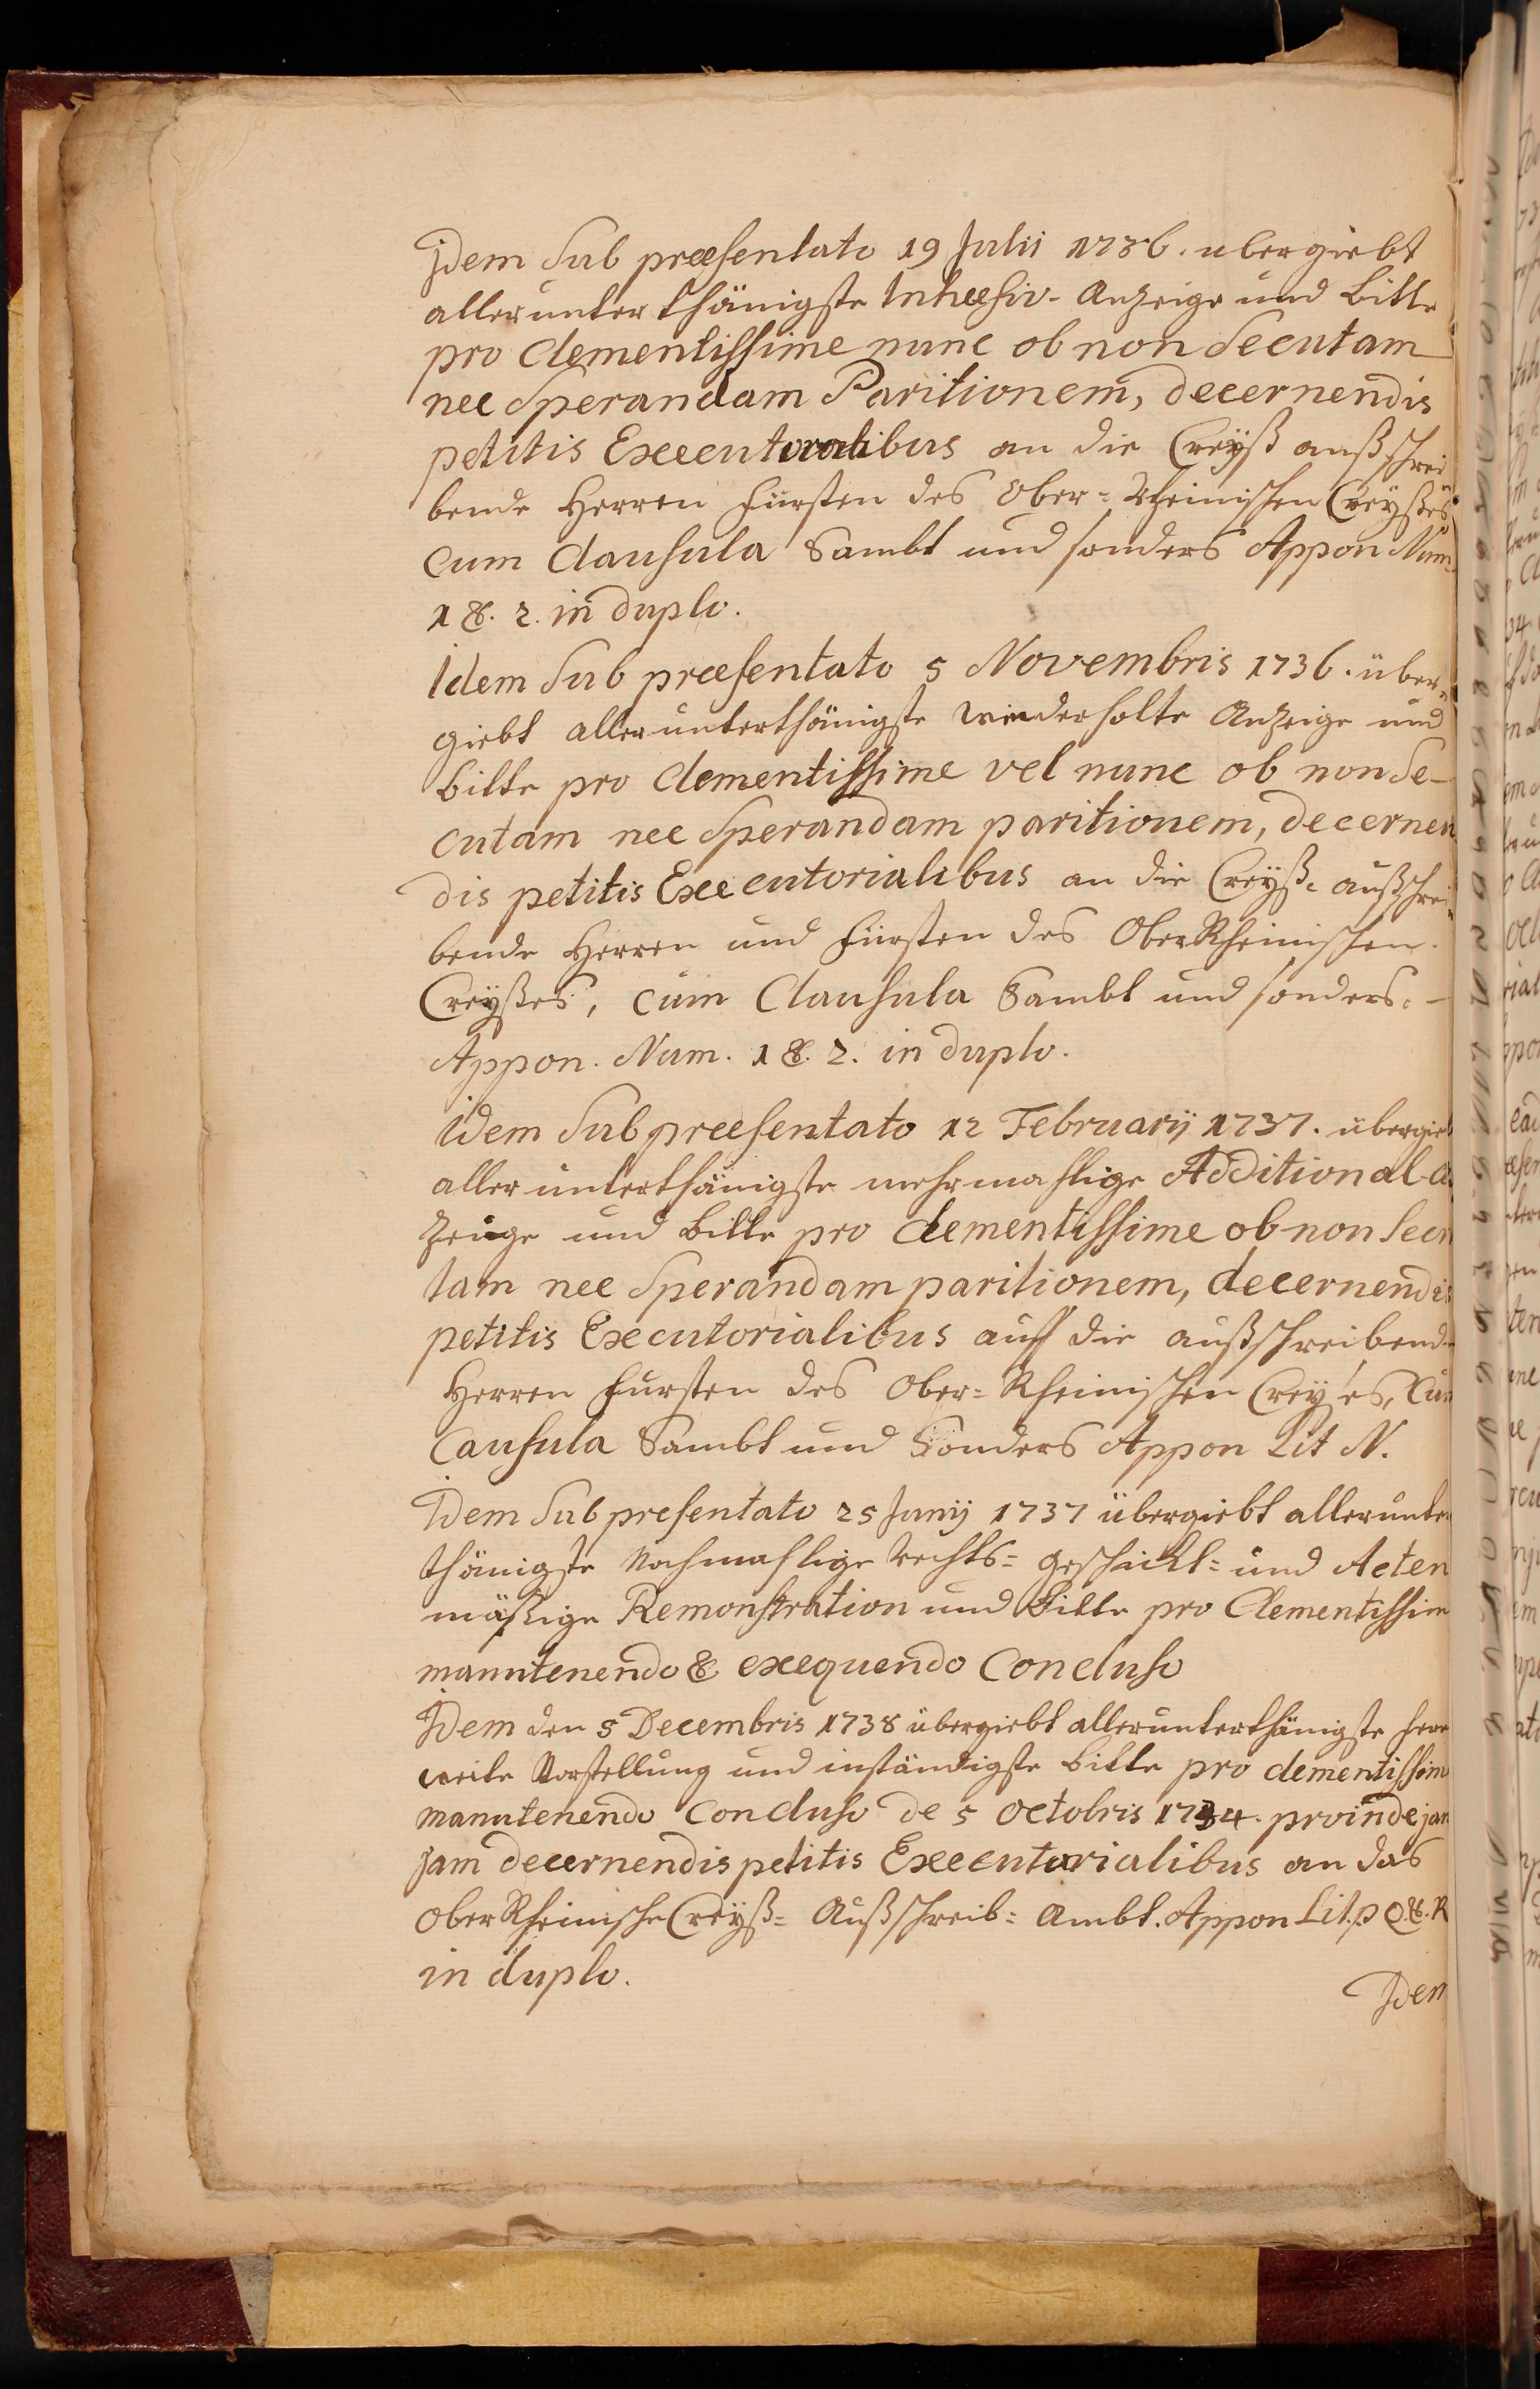 Idem Sub præsentato 19 Julii 1736. ubergiebt
allerunterthänigste Inhæsiv- Anzeige und Bitte
pro Clementissime nunc ob non Secutam
nec Sperandam Paritionem, decernendis
petitis Executorialibus an die Creyß außschrei-
bende Herren Fürsten des Ober-Rheinischen Creyßes
cum Clausula Sambt und sonders Appon Num.
1 &. 2. in duplo.
Idem Sub præsentato 5 Novembris 1736. über-
giebt allerunterthänigste wiederholte Anzeige und
bitte pro Clementissime vel nunc ob non Se-
cutam nec Sperandam paritionem, decernen
dis petitis Executorialibus an die Creyß- außschrei-
bende Herren und Fürsten des OberRheinischen
Creyßes, cum Clausula Sambt und sonders. -
Appon. Num. 1 &. 2. in duplo.
idem Sub præsentato 12 Februarÿ 1737. übergieb
allerunterthänigste mehrmahlige Additional-A
zeige und Bitte pro Clementissime ob non Secu
tam nec Sperandam paritionem, decernendis
petitis Executorialibus auff die außschreibende
Herren Fursten des Ober-Rheinischen Crey'es, Cum
Causula Sambt und Sonders Appon Lit N.
Idem Sub presentato 25 Junÿ 1737 übergiebt allerunter
thänigste Nochmahlige rechts- geschicht- und Acten
mäßige Remonstration und Bitte pro Clementissime
manutenendo & exequendo Concluso
Idem den 5 Decembris 1738 übergiebt allerunterthänigste
weite Vorstellung und inständigste bitte pro clementissime
manutenendo Concluso de 5 Octobris 1734. proinde jam
jam decernendis petitis Executorialibus an das
OberRheinische Creyß- Außschreib- Ambt. Appon Lit. p Q &. R
in duplo.
Idem